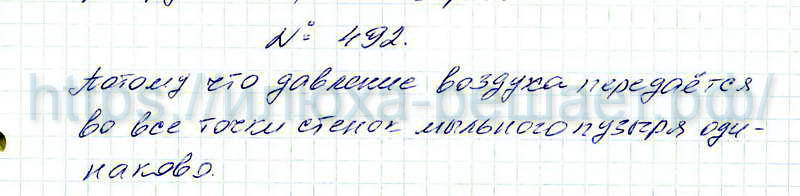 № 492.
Потому что давление воздуха передаётся
во все точки стенок мыльного пузыря оди-
наково.